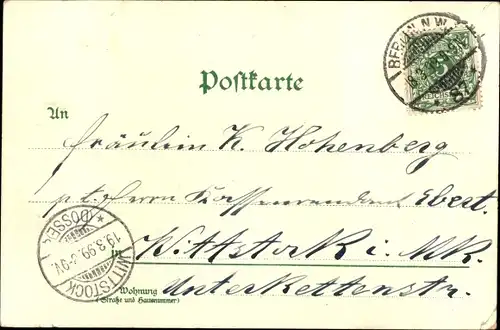 BERLIN N.W.
Postkarte
An
Fräulein K. Hohenberg
p. t. Herrn Kassenrendant Ebert.
in Wittstock i. MK.
Wohnung Unterkettenstr.
(Straße und Hausnummer)
WITTSTOCK
19.3.99. 8-9V.
(DOSSE)